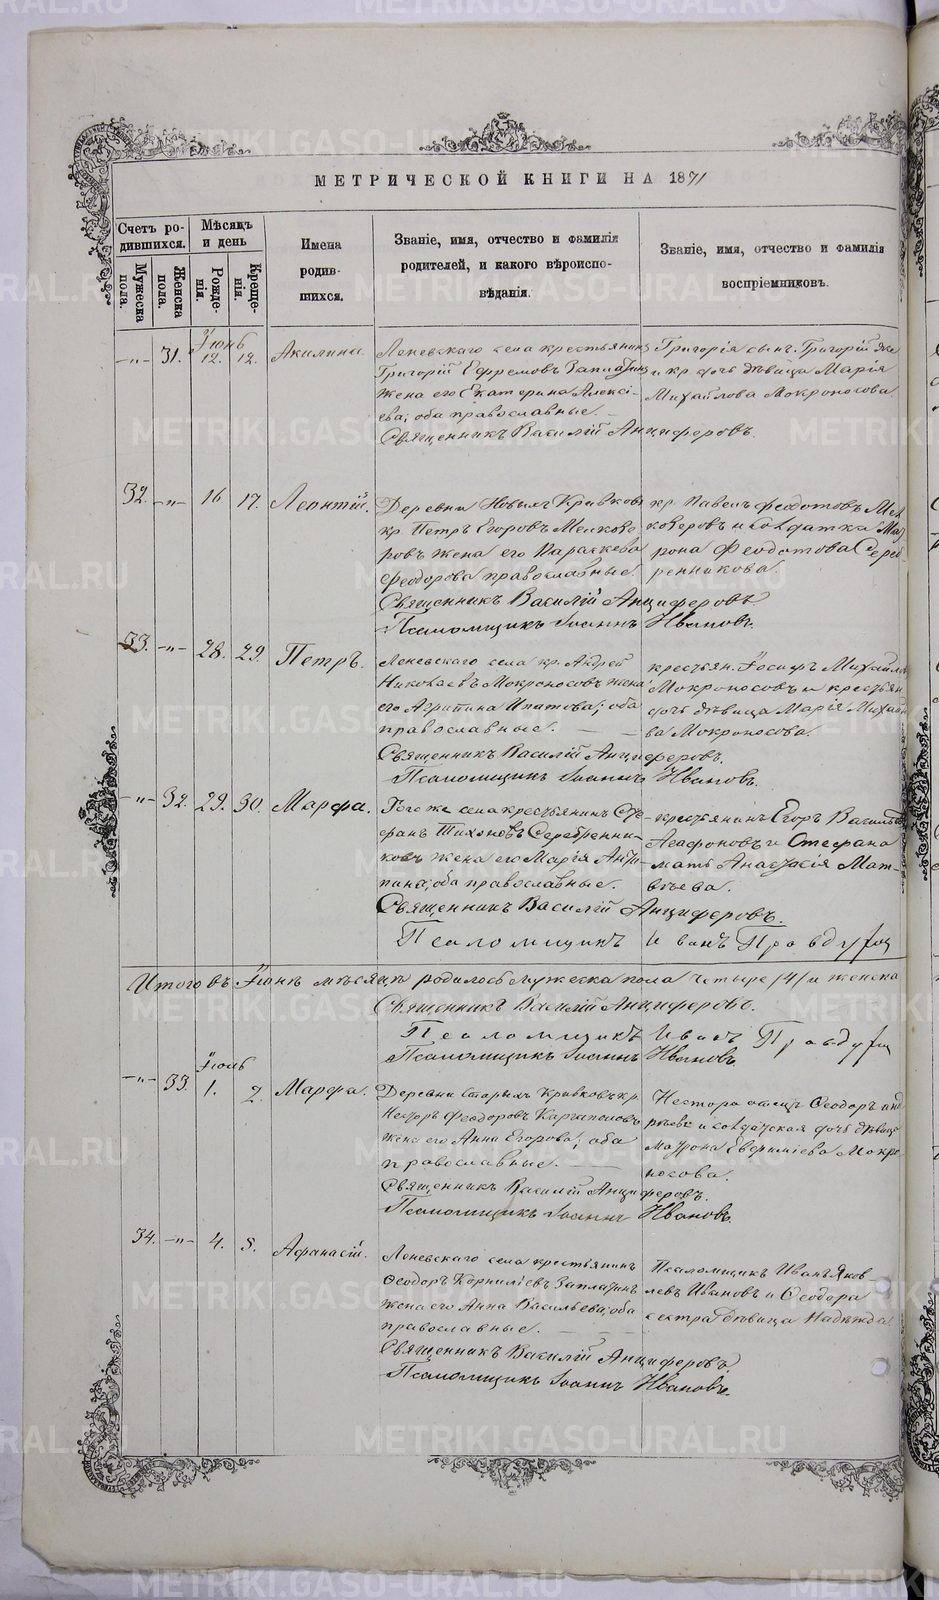 МЕТРИЧЕСКОЙ КНИГИ НА 1871
Счетъ родившихся.
Мужеска пола.
Женска пола.
Мѣсяцъ и день
Рожденія.
Крещенія.
Имена родившихся.
Званіе, имя, отчество и фамилія родителей, и какого вѣроисповѣданія.
Званіе, имя, отчество и фамилія воспріемниковъ.
Іюнь
-„- 31. 12. 12. Акилина
Леневскаго села крестьянинъ
Григорій Ефремовъ
жена его Екатерина Алексі-
ева; оба православные.
Григорія сынъ Григорій же
и кр. дочь дѣвица Марія
Михайлова Мокроносова
Священникъ Василій Анциферовъ.
32. -„- 16 17. Леонтій.
Деревни Новыхъ Кривковъ
кр. Петръ Егоровъ Мелкозе-
ровъ жена его Параскева
Феодорова православные.
кр. Павелъ Федотовъ Мел
козеровъ и солдатка Мат
рона Феодотова Сереб-
ренникова.
Священникъ Василій Анциферовъ
Псаломщикъ Іоаннъ Ивановъ.
33. -„- 28. 29. Петръ.
Леневскаго села кр. Андрей
Николаевъ Мокроносовъ жена
его Агрипина Ипатова; оба
православные.
крестьян. Іосифъ Михайлов
Мокроносовъ и крестьян
дочь дѣвица Марія Михайл
ва Мокроносова.
Священникъ Василій Анциферовъ.
Псаломщикъ Іоаннъ Ивановъ.
-„- 32. 29. 30. Марфа.
Того же села крестьянинъ Сте
фанъ Тихоновъ Серебренни-
ковъ жена его Марія Анти-
пина; оба православные.
крестьянинъ Егоръ Василье
Агафоновъ и Стефана
мать Анастасія Мат-
вѣева.
Священникъ Василій Анциферовъ.
Псаломщикъ Иванъ
Итого въ Іюнѣ мѣсяцѣ родилось мужеска пола четыре /4/ и женска
Священникъ Василій Анциферовъ.
Псаломщикъ Иванъ
Псаломщикъ Іоаннъ Ивановъ.
Іюль
-„- 33. 1. 2. Марфа.
Деревни Старыхъ Кривковъ кр.
Несторъ Феодоровъ Каргаполовъ
жена его Анна Егорова; оба
православные.
Нестора отецъ Феодоръ Анд
реевъ и солдатская дочь дѣвица
Матрона Евфиміева Мокро
носова.
Священникъ Василій Анциферовъ.
Псаломщикъ Іоаннъ Ивановъ.
34. -„- 4. 8. Афанасій.
Леневскаго села крестьянинъ
Феодоръ Корниліевъ
жена его Анна Васильева; оба
православные.
Псаломщикъ Иванъ Яков
левъ Ивановъ и Феодора
сестра дѣвица Надежда
Священникъ Василій Анциферовъ
Псаломщикъ Іоаннъ Ивановъ.
METRIKI.GASO-URAL.RU